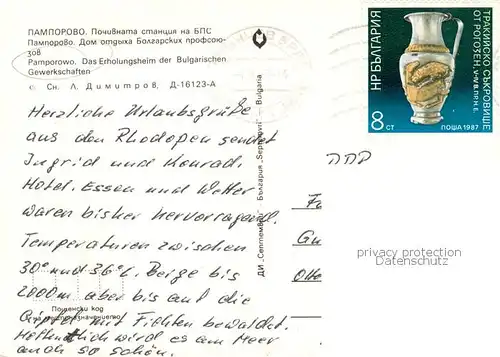 ПАМПОРОВО. Почивната станция на БПС
Пампорово. Дом отдыха Болгарских профсою-
зов
Pamporowo. Das Erholungsheim der Bulgarischen
Gewerkschaften
© Сн. Л. Димитров, Д-16123-А
Herzliche Urlaubsgrüße
aus den Rhodopen sendet
Ingrid und Konrad.
Hotel, Essen und Wetter
waren bisher hervorragend.
Temperaturen zwischen
30° und 36°C. Berge bis
2000m aber bis auf die
Gipfel mit Fichten bewaldet.
Hoffentlich wird es am Meer
auch so schön.
Пощенски код
местоназначението
ДИ „Септември" · България „Septemvri" — Bulgaria
НР БЪЛГАРИЯ
ТРАКИЙСКО СЪКРОВИЩЕ
ОТ РОГОЗЕН,
8 СТ
ПОЩА 1987
ППР
privacy protection
Datenschutz